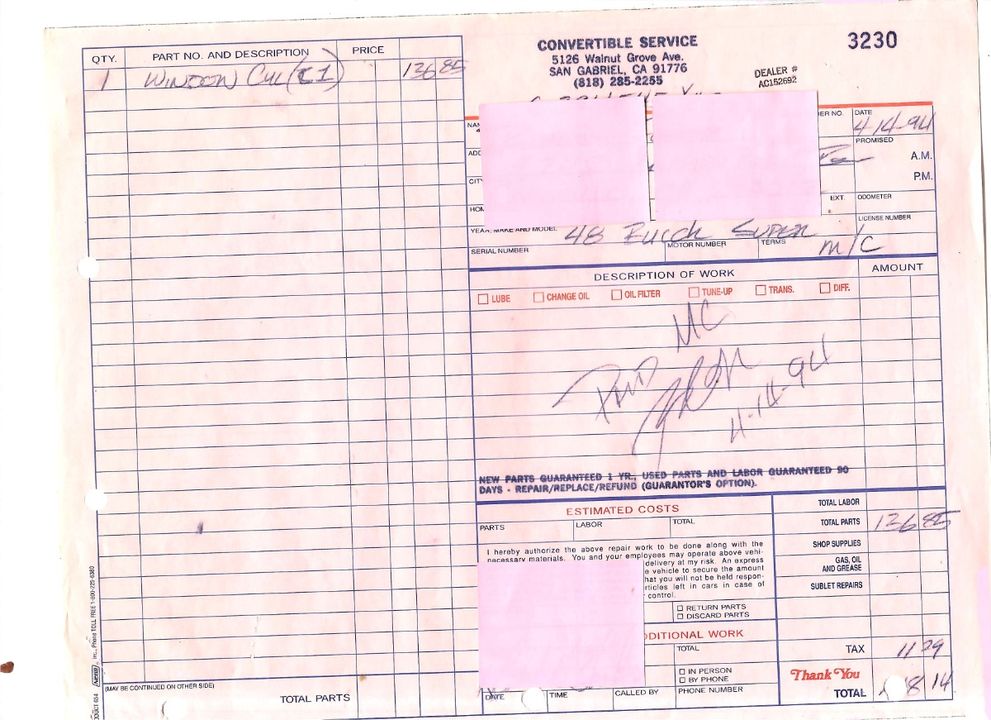 CONVERTIBLE SERVICE
5126 Walnut Grove Ave.
SAN GABRIEL, CA 91776
(818) 285-2255
DEALER #
AC152692
3230
QTY. PART NO. AND DESCRIPTION PRICE
1 WINDOW CYL 136 85
NAM
ER NO. DATE
4-14-94
ADD
PROMISED
A.M.
CITY
P.M.
HOM
EXT. ODOMETER
YEAR, MAKE AND MODEL 48 Buick Super
LICENSE NUMBER
SERIAL NUMBER MOTOR NUMBER TERMS M/C
DESCRIPTION OF WORK AMOUNT
LUBE CHANGE OIL OIL FILTER TUNE-UP TRANS. DIFF.
MC
PAID
4-14-94
NEW PARTS GUARANTEED 1 YR., USED PARTS AND LABOR GUARANTEED 90
DAYS - REPAIR/REPLACE/REFUND (GUARANTOR'S OPTION).
ESTIMATED COSTS
PARTS LABOR TOTAL
TOTAL LABOR
TOTAL PARTS 136 85
SHOP SUPPLIES
GAS, OIL
AND GREASE
SUBLET REPAIRS
I hereby authorize the above repair work to be done along with the
necessary materials. You and your employees may operate above vehi-
delivery at my risk. An express
e vehicle to secure the amount
hat you will not be held respon-
rticles left in cars in case of
control.
RETURN PARTS
DISCARD PARTS
DDITIONAL WORK
TOTAL
TAX 11 29
IN PERSON
BY PHONE
Thank You
TOTAL 8 14
DATE TIME CALLED BY PHONE NUMBER
(MAY BE CONTINUED ON OTHER SIDE)
TOTAL PARTS
Inc., Phone TOLL FREE 1-800-225-6380